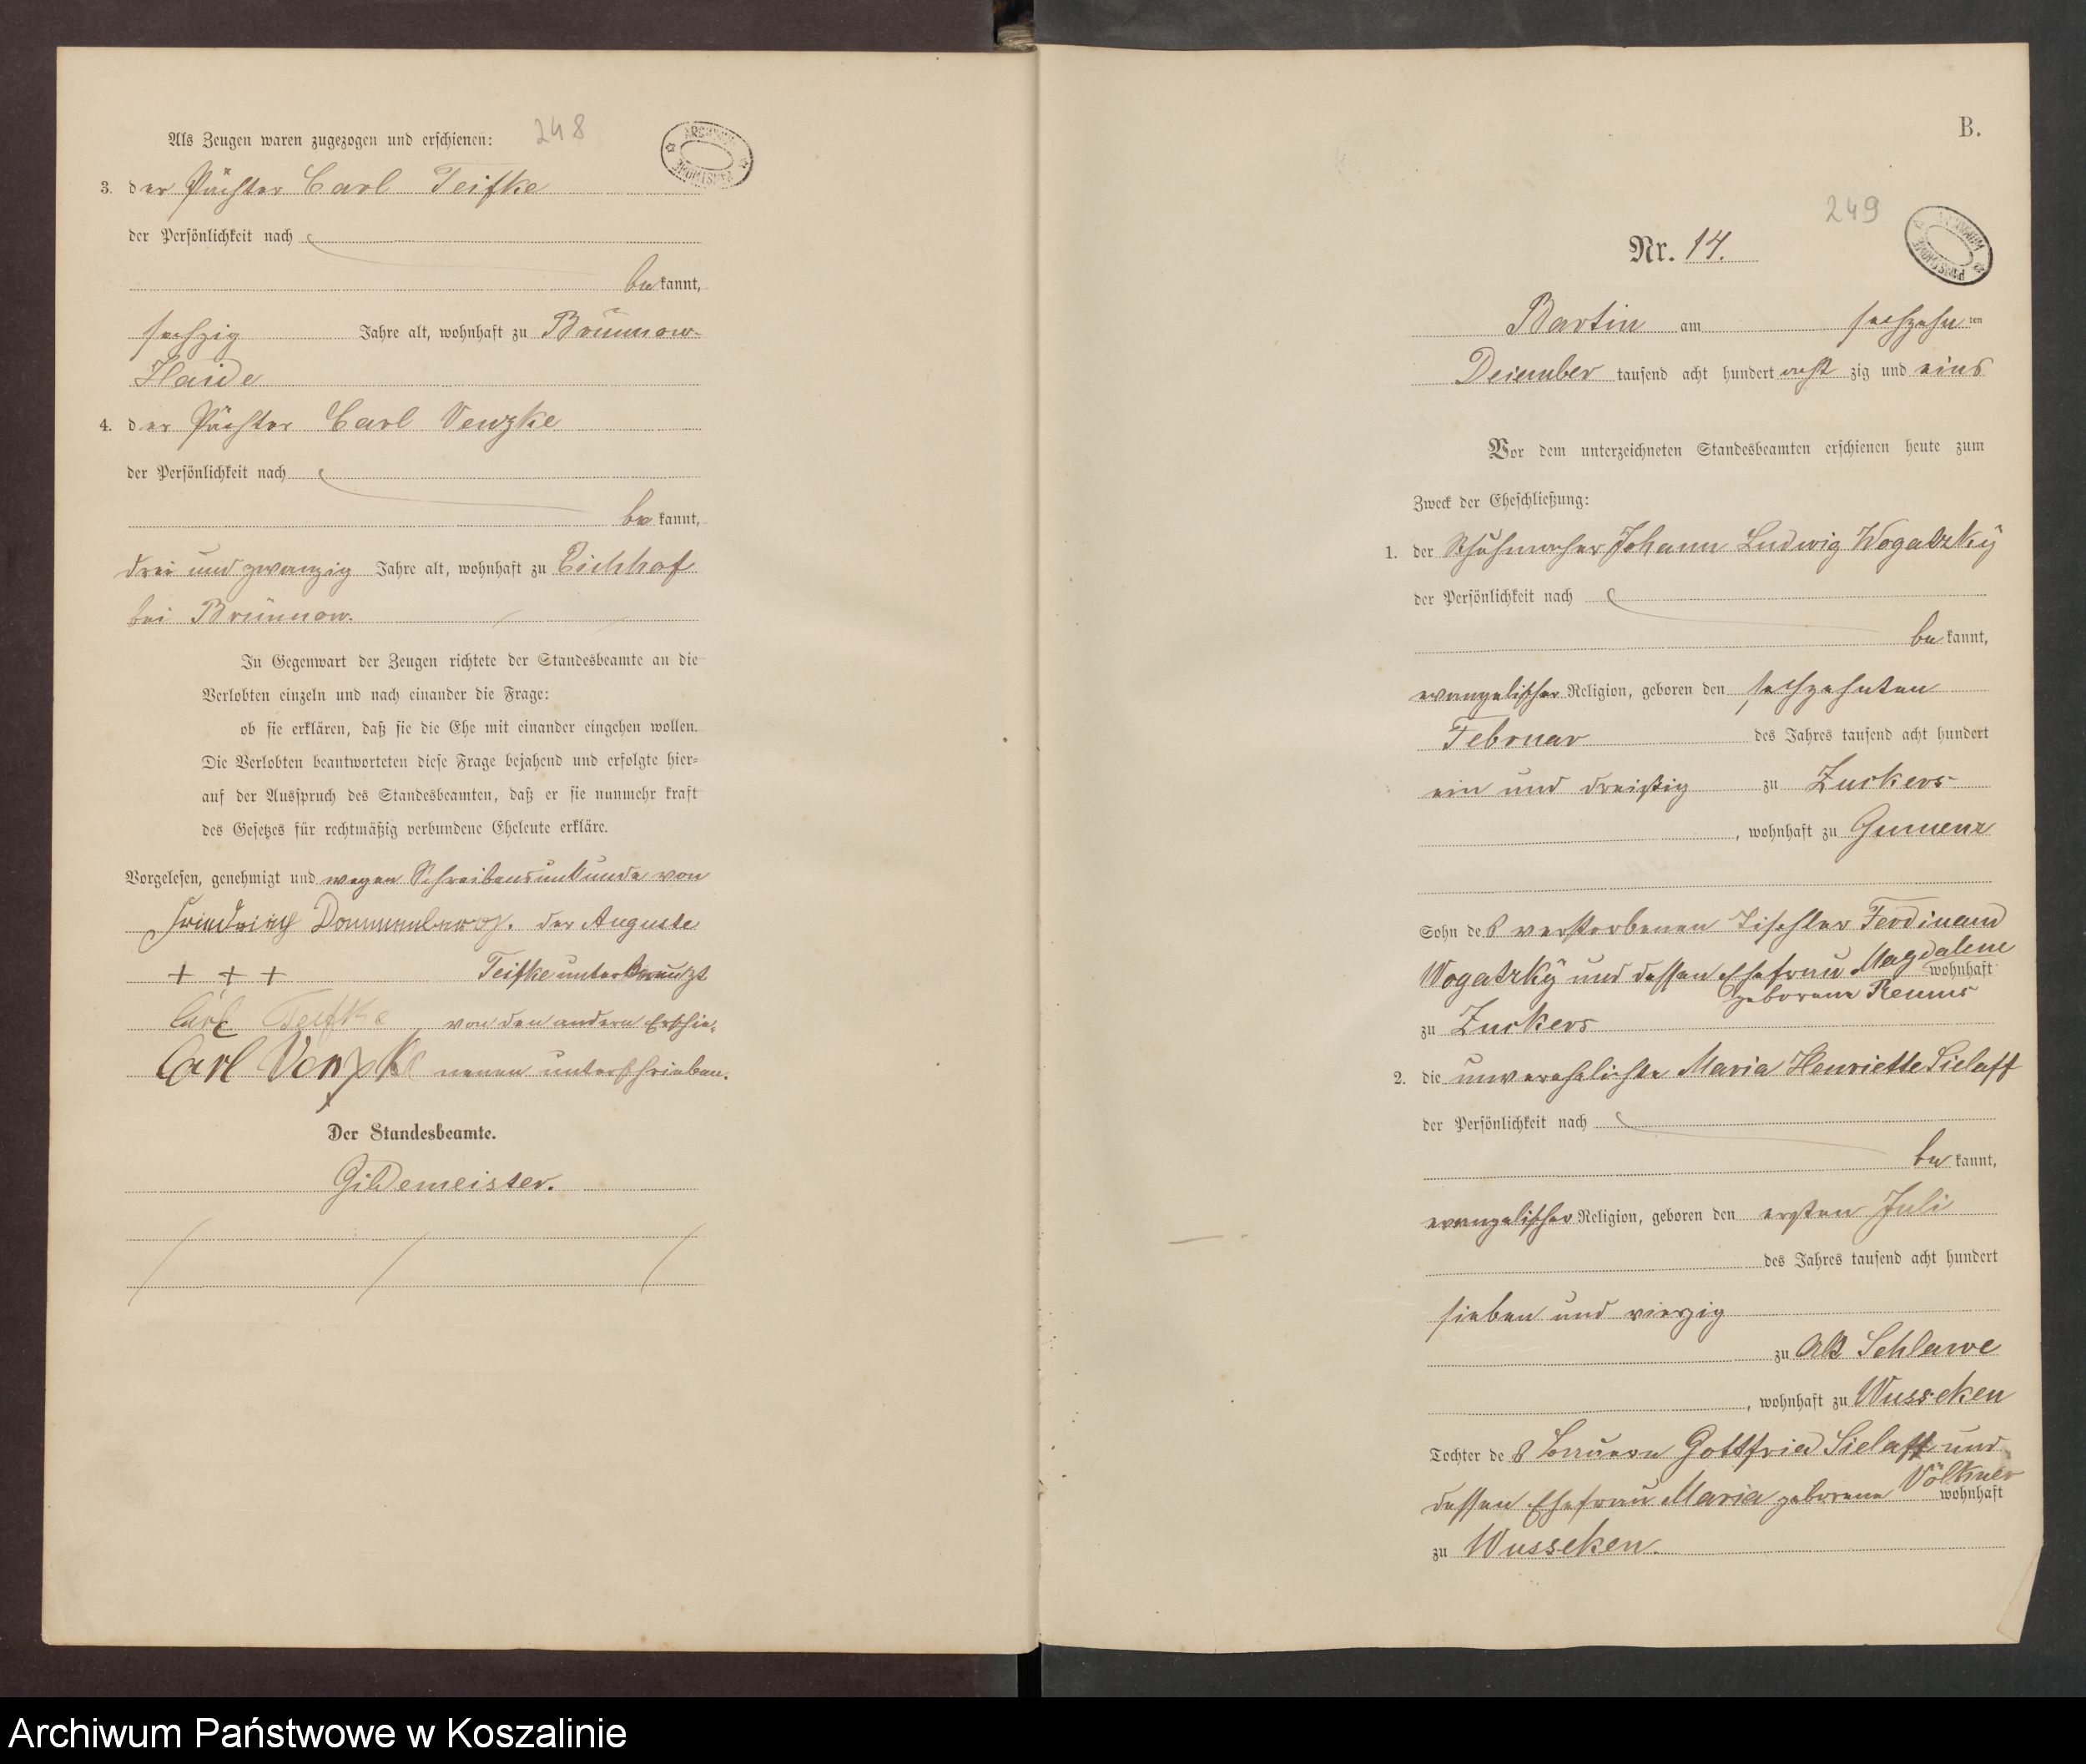 Als Zeugen waren zugezogen und erschienen:
248
3. der Pächter Carl Teifke
der Persönlichkeit nach
bekannt,
sechzig Jahre alt, wohnhaft zu Brünnow-
Haide
4. der Pächter Carl Venzke
der Persönlichkeit nach
bekannt,
drei und zwanzig Jahre alt, wohnhaft zu Eichhof
bei Brünnow.
In Gegenwart der Zeugen richtete der Standesbeamte an die
Verlobten einzeln und nach einander die Frage:
ob sie erklären, daß sie die Ehe mit einander eingehen wollen.
Die Verlobten beantworteten diese Frage bejahend und erfolgte hier=
auf der Ausspruch des Standesbeamten, daß er sie nunmehr kraft
des Gesetzes für rechtmäßig verbundene Eheleute erkläre.
Vorgelesen, genehmigt und wegen Schreibensunkunde von
Friedrich der Auguste
+ + + Teifke unterkreuzt
Carl Teifke von den andern Erschie-
Carl Venzke nenen unterschrieben.
Der Standesbeamte.
Gildemeister.
B.
249
Nr. 14.
Bartin am sechzehn ten
Dezember tausend acht hundert acht zig und eins
Vor dem unterzeichneten Standesbeamten erschienen heute zum
Zweck der Eheschließung:
1. der Schuhmacher Johann Ludwig Wogatzký
der Persönlichkeit nach
bekannt,
evangelischer Religion, geboren den sechzehnten
Februar des Jahres tausend acht hundert
ein und dreißig zu Zuckers
, wohnhaft zu Gumenz
Sohn des verstorbenen Tischler Ferdinand
Wogatzký und dessen Ehefrau Magdalene
geborene wohnhaft
zu Zuckers
2. die unverehelichte Maria Henriette Sielaff
der Persönlichkeit nach
bekannt,
evangelischer Religion, geboren den ersten Juli
des Jahres tausend acht hundert
sieben und vierzig
zu Alt Schlawe
, wohnhaft zu Wusseken
Tochter des Bauern Gottfried Sielaff und
dessen Ehefrau Maria geborene Völkner
wohnhaft
zu Wusseken.
Archiwum Państwowe w Koszalinie